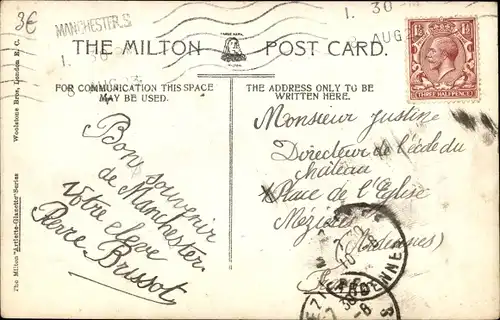 3€
MANCHESTER.S
1. 30
AUG
1. 30
8 AUG
THE MILTON POST CARD.
THREE HALFPENCE
FOR COMMUNICATION THIS SPACE
MAY BE USED.
THE ADDRESS ONLY TO BE
WRITTEN HERE.
Bon souvenir
de Manchester.
Votre élève
Pierre Brissot
Monsieur Justine
Directeur de l'école du
château
Place de l'Eglise
(Ardennes)
The Milton "Artlette-Glazette" Series
Woolstone Bros., London E.C.